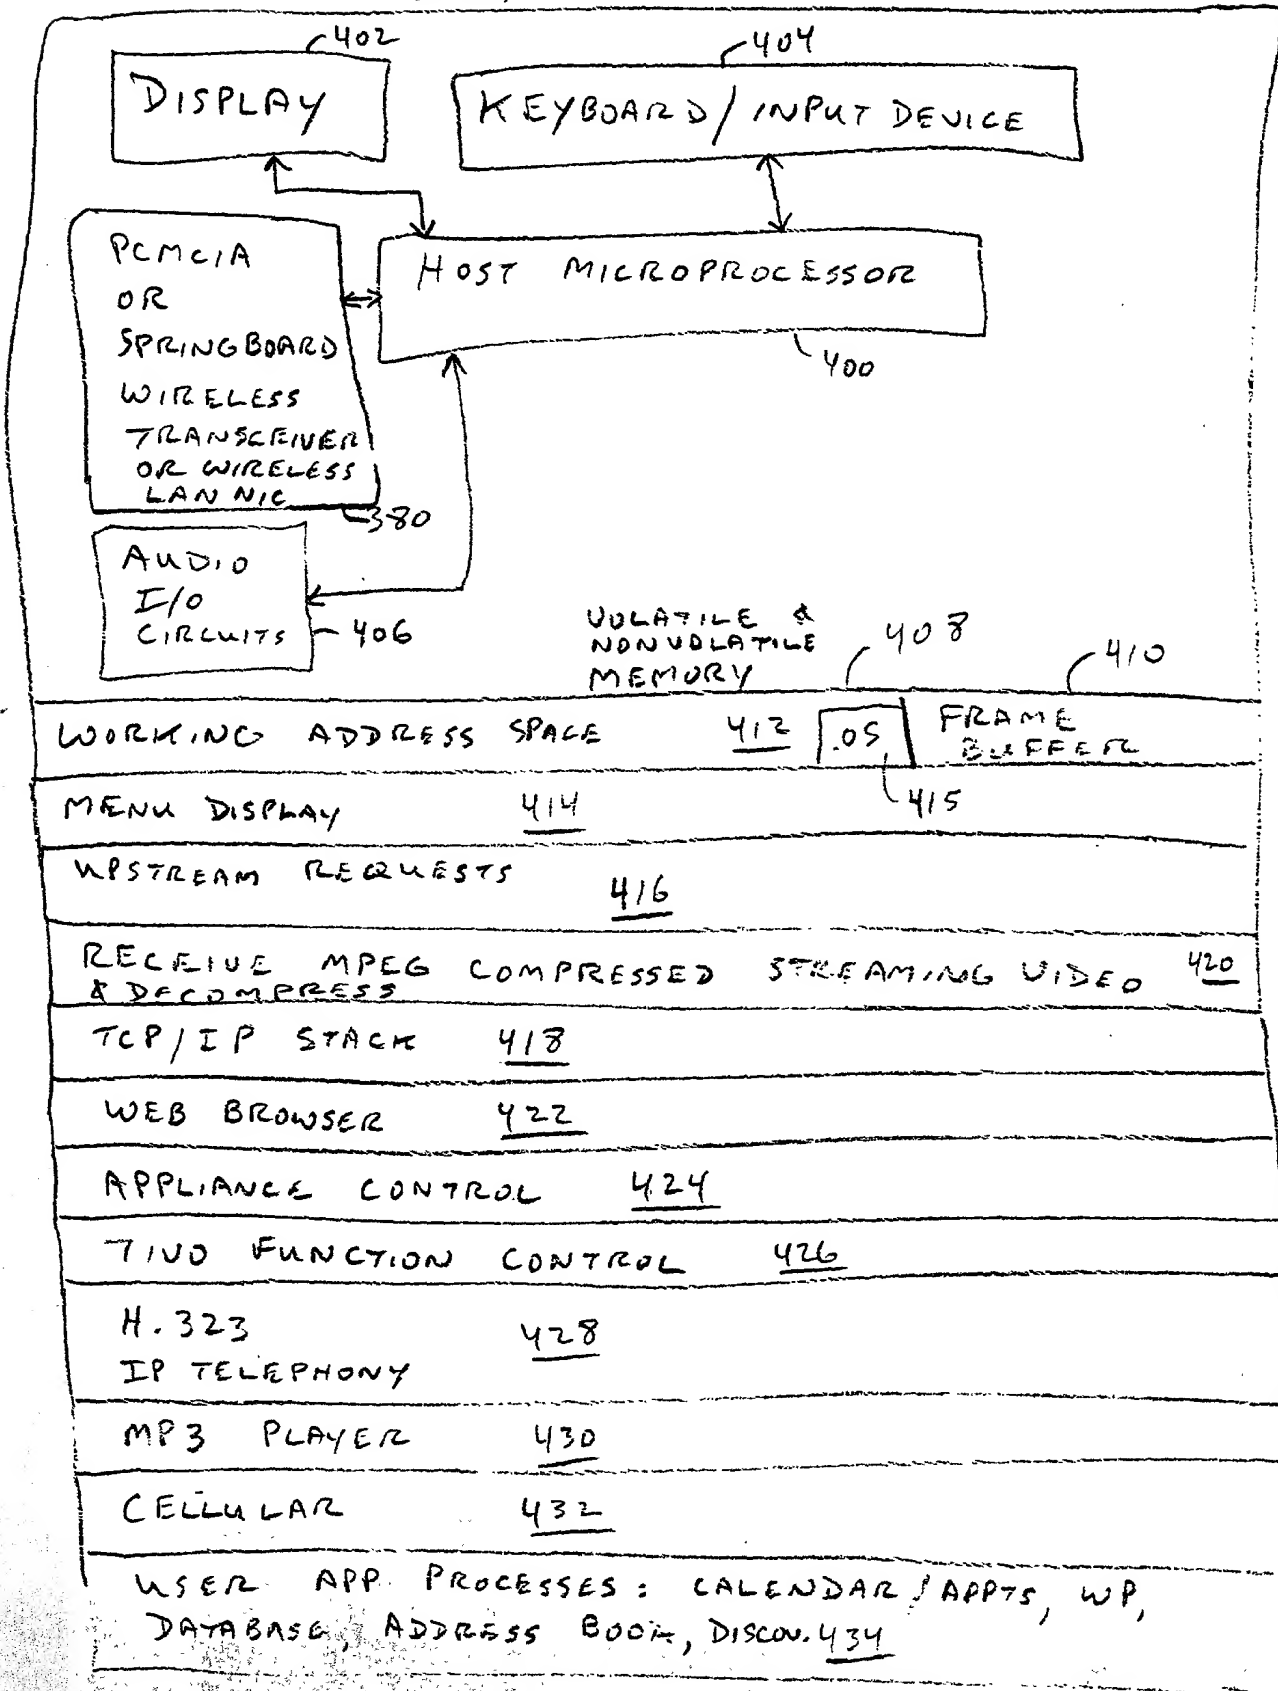 402
404
DISPLAY
KEYBOARD/INPUT DEVICE
PCMCIA
OR
SPRINGBOARD
WIRELESS
TRANSCEIVER
OR WIRELESS
LAN NIC
380
HOST MICROPROCESSOR
400
AUDIO
I/O
CIRCUITS
406
VOLATILE &
NONVOLATILE
MEMORY
408
410
WORKING ADDRESS SPACE 412 OS FRAME
BUFFER
415
MENU DISPLAY 414
UPSTREAM REQUESTS 416
RECEIVE MPEG COMPRESSED STREAMING VIDEO 420
& DECOMPRESS
TCP/IP STACK 418
WEB BROWSER 422
APPLIANCE CONTROL 424
TIVO FUNCTION CONTROL 426
H.323 428
IP TELEPHONY
MP3 PLAYER 430
CELLULAR 432
USER APP. PROCESSES: CALENDAR/APPTS, WP,
DATABASE, ADDRESS BOOK, DISCOV. 434